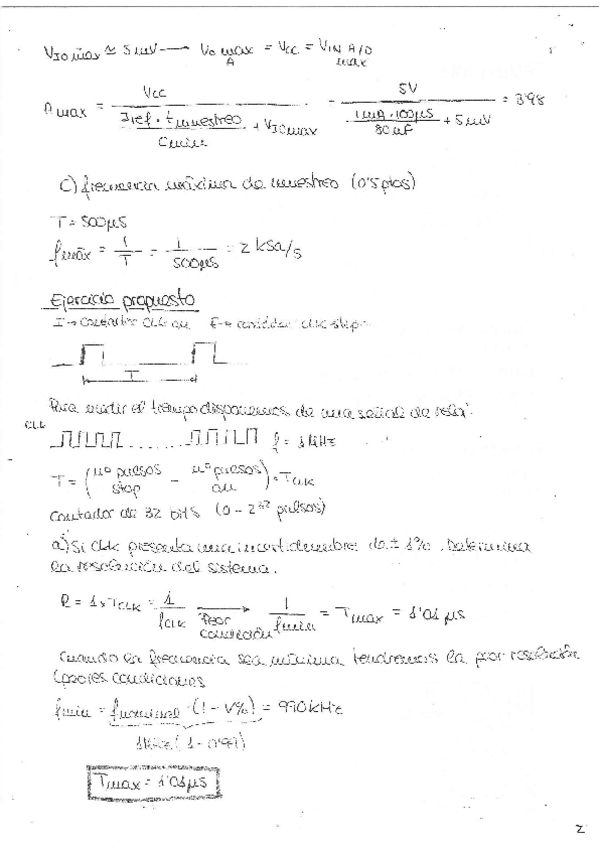 V_IO máx ≅ 5mV → V_o max = V_CC = V_IN A/D
A max
A max = V_CC / (I_ref · t_muestreo / C_min + V_IO max) = 5V / (1mA·100μS / 80nF + 5mV) = 3'98
C) frecuencia máxima de muestreo (0'5ptos)
T = 500μS
f_máx = 1/T = 1/500μS = 2 kSa/s
Ejercicio propuesto
T
Para medir el tiempo disponemos de una señal de reloj.
CLK
T = (nº pulsos stop − nº pulsos on) · T_CLK
contador de 32 bits (0 - 2³² pulsos)
a) Si clk presenta una incertidumbre de ± 1%. Determina
la resolución del sistema.
R = 1 × T_CLK = 1/f_CLK → Peor condición 1/f_min = T_max = 1'01 μs
Cuando la frecuencia sea mínima tendremos la peor resolución
(peores condiciones
f_min = f_nominal · (1 - V%) = 990kHz
T_max = 1'01μs
2